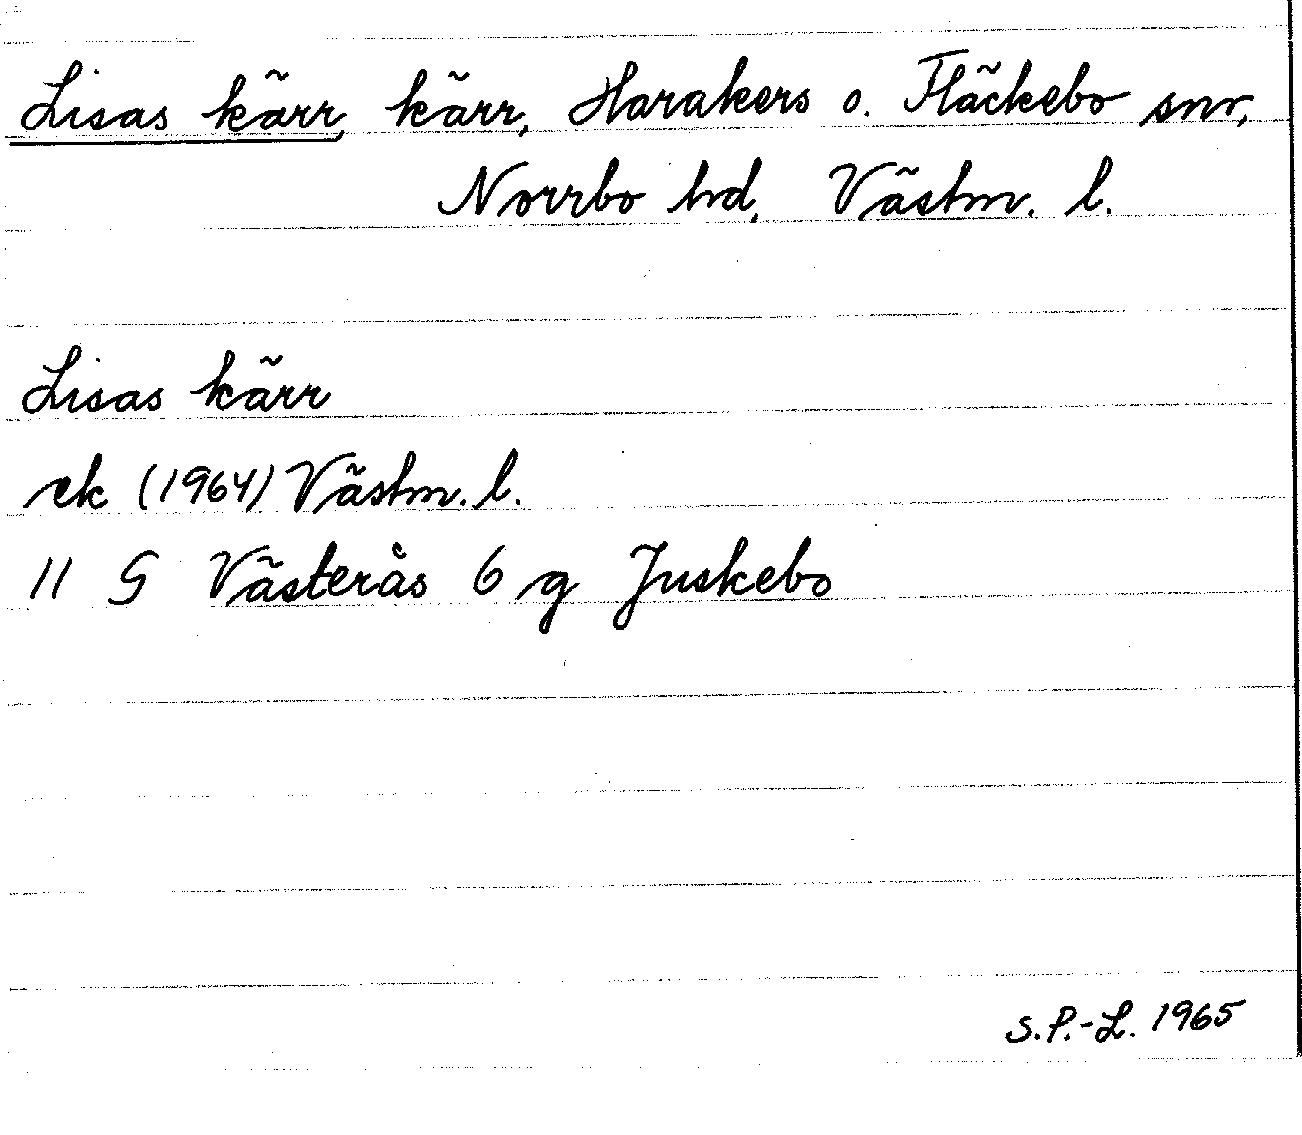 Lisas kärr, kärr, Harakers o. Fläckebo snr,
Norrbo hd, Västm. l.
Lisas kärr
ek (1964) Västm. l.
11 G Västerås 6 g Juskebo
S.P.-L. 1965